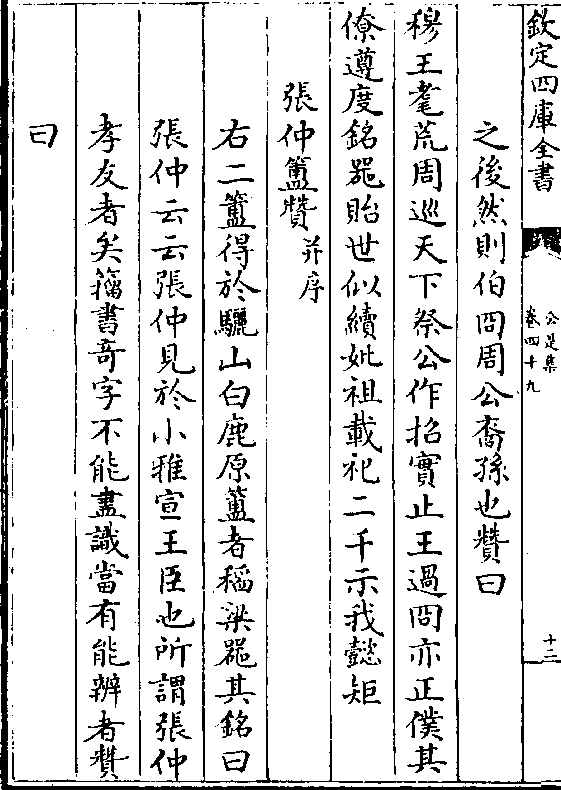 欽定四庫全書
公是集
卷四十九
十二
之後然則伯冏周公裔孫也贊曰
穆王耄荒周巡天下祭公作招實止王過冏亦正僕其
僚遵度銘器貽世似續妣祖載祀二千示我懿矩
張仲簠贊并序
右二簠得於驪山白鹿原簠者稻粱器其銘曰
張仲云云張仲見於小雅宣王臣也所謂張仲
孝友者矣籀書奇字不能盡識當有能辨者贊
曰